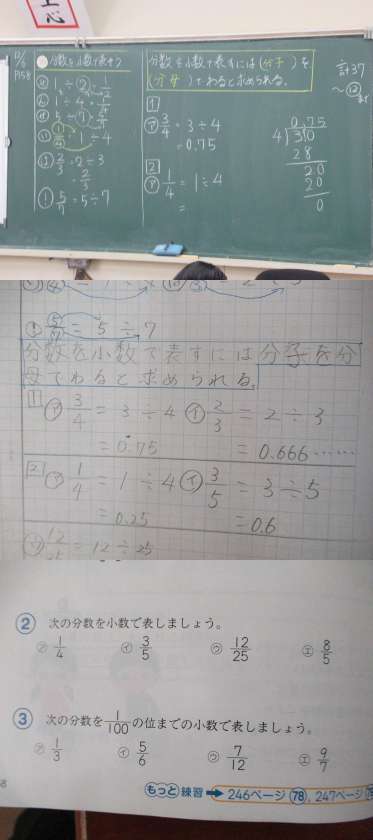 12/8
P158
分数を小数で表そう
あ 1÷2=1/2
い 1÷4=1/4
う 5÷7=5/7
い 1/4=1÷4
3 2/3=2÷3
=2/3
! 5/7=5÷7
分数を小数で表すには(分子)を
(分母)でわると求められる。
1
ア 3/4=3÷4
=0.75
2
ア 1/4=1÷4
=
計37
〜⑫まで
0.75
4 3.0
28
20
20
0
! 5/7=5÷7
分数を小数で表すには分子を分
母でわると求められる。
1 ア 3/4=3÷4 イ 2/3=2÷3
=0.75 =0.666……
2 ア 1/4=1÷4 イ 3/5=3÷5
=0.25 =0.6
ウ 12/25=12÷25
2 次の分数を小数で表しましょう。
ア 1/4 イ 3/5 ウ 12/25 エ 8/5
3 次の分数を1/100の位までの小数で表しましょう。
ア 1/3 イ 5/6 ウ 7/12 エ 9/7
もっと練習 ➡ 246ページ 78、247ページ